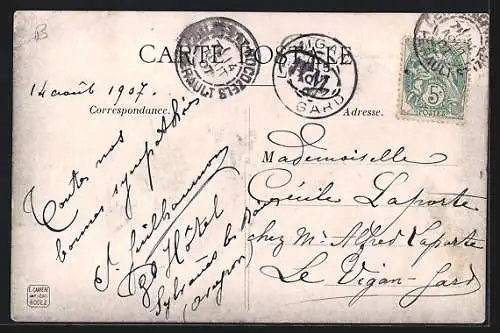 B
CARTE POSTALE
LE VIGAN
GARD
5c
POSTES
14 août 1907.
Correspondance.
Adresse.
Toutes nos
bonnes sympathies
Gd Hôtel
Sylvanès les Bains
(Aveyron)
Mademoiselle
Cécile Laporte
chez Mr Alfred Laporte
Le Vigan-Gard
E. CARRERE
RODEZ